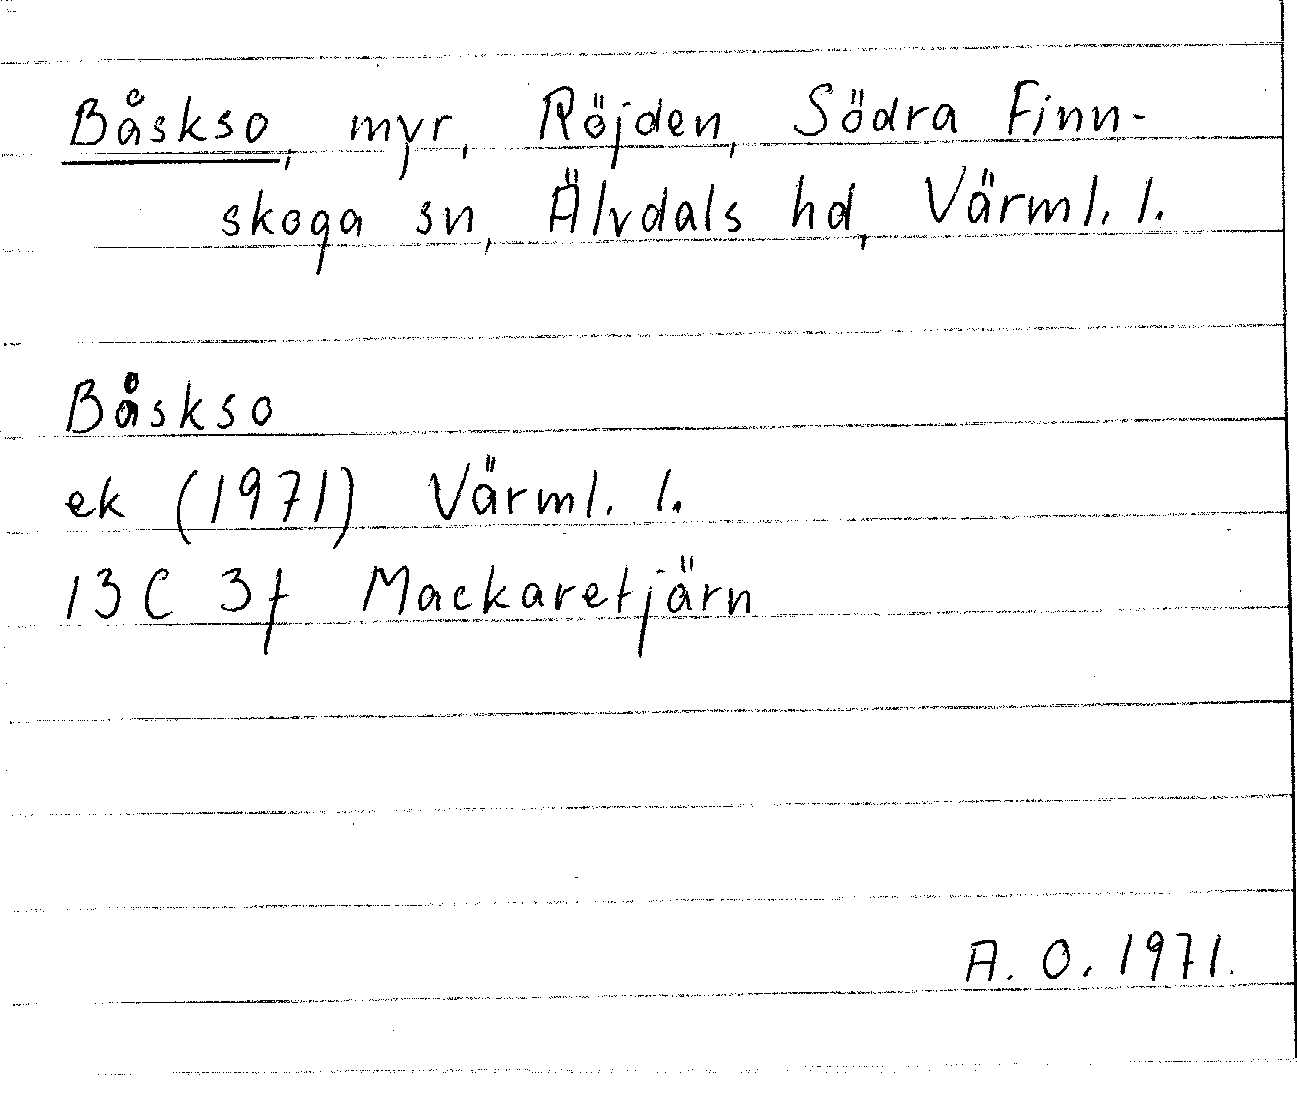 Båskso, myr, Röjden, Södra Finn-
skoga sn, Älvdals hd, Värml. l.
Båskso
ek (1971) Värml. l.
13 C 3f Mackaretjärn
A. O. 1971.